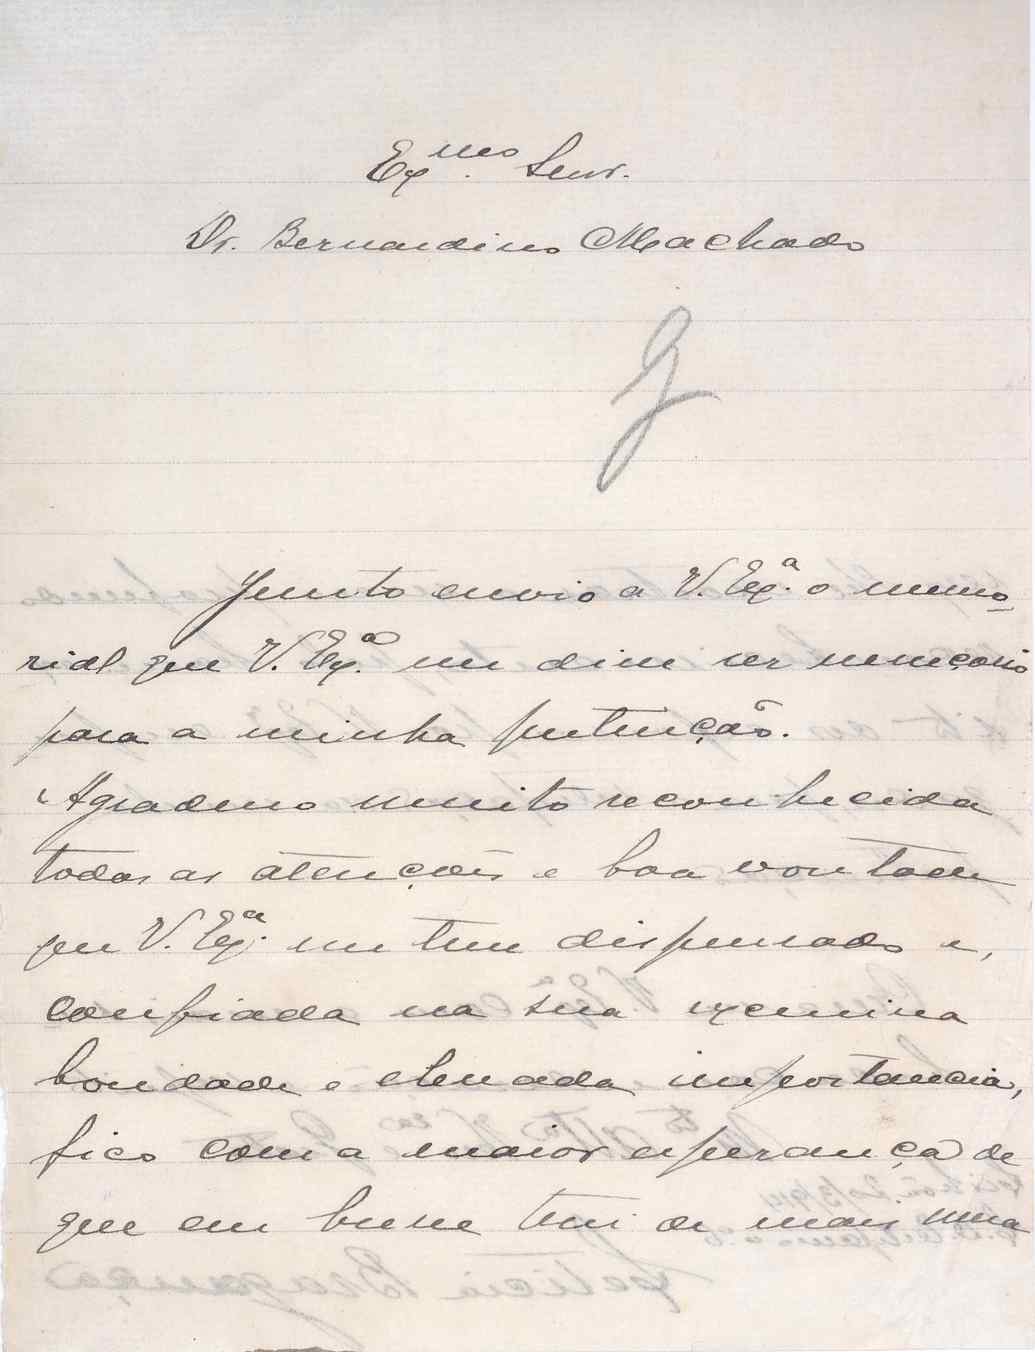 Exmo. Senr.
Dr. Bernardino Machado
Junto envio a V. Exª. o memo-
rial que V. Exª. me disse ser necessario
para a minha pretenção.
Agradeço muito reconhecida
todas as atenções e boa vontade
que V. Exª. me tem dispensado e,
confiada na sua extremosa
bondade e elevada importancia,
fico com a maior esperança de
que em breve terei de mais uma